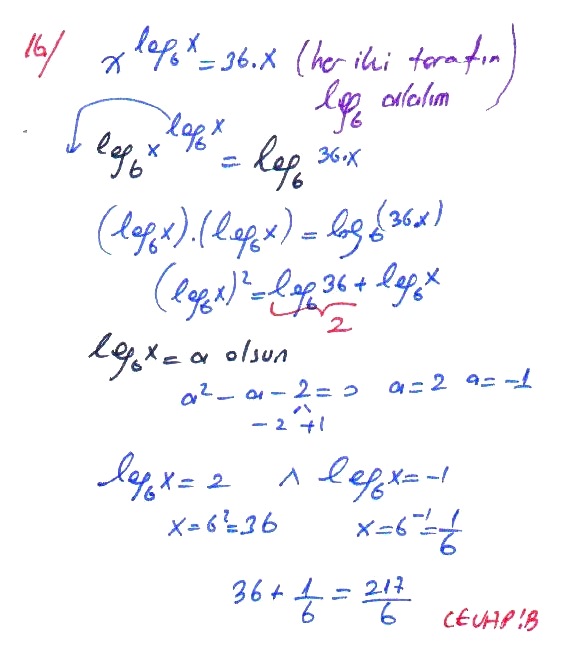 16/ x^{log₆x} = 36.x (her iki tarafın
log₆ alalım)
log₆ x^{log₆x} = log₆ 36.x
(log₆x).(log₆x) = log₆(36x)
(log₆x)² = log₆36 + log₆x
2
log₆x = a olsun
a² - a - 2 = 0 a = 2 a = -1
-2 +1
log₆x = 2 ∧ log₆x = -1
x = 6² = 36 x = 6⁻¹ = 1/6
36 + 1/6 = 217/6 CEVAP:B